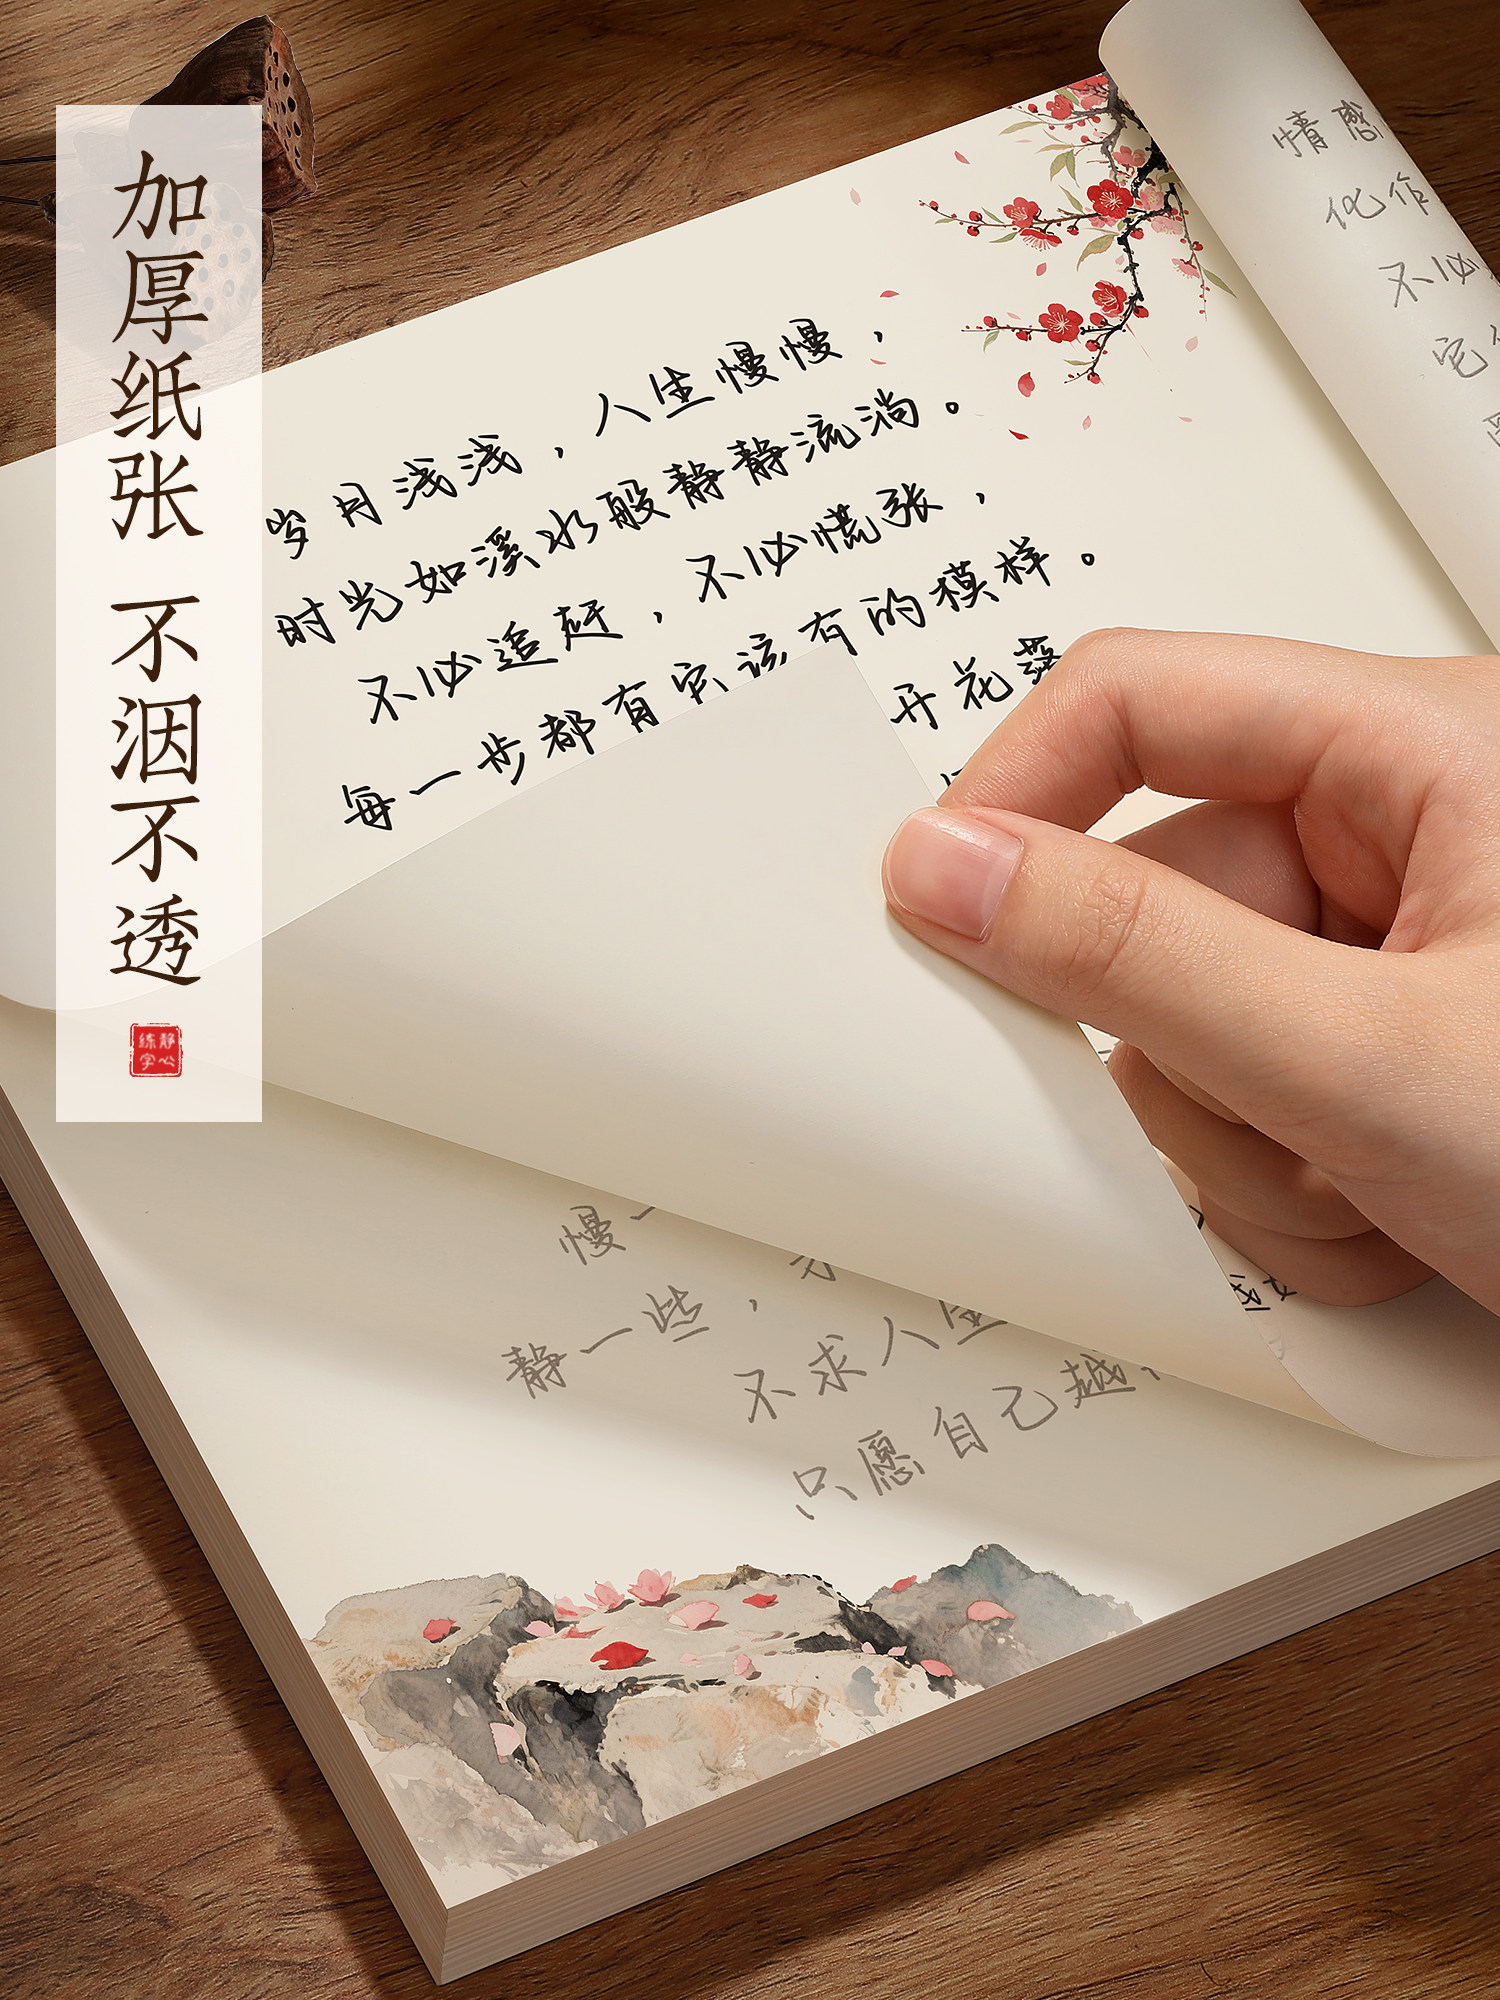 加厚纸张 不洇不透
静心
练字
岁月浅浅，人生慢慢，
时光如溪水般静静流淌。
不必追赶，不必慌张，
每一步都有它该有的模样。
开花落
情感
化作
不必
它
慢一
静一些，才
不求人生
只愿自己越